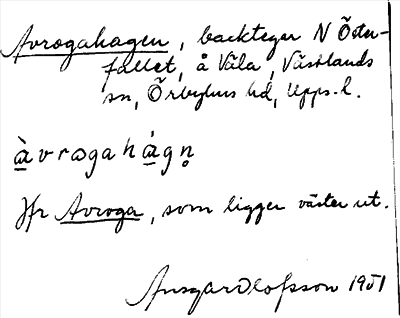 Avrogahagen, backteger N Öster-
fallet, å Våla, Västlands
sn, Örbyhus hd, Upps. l.
àvrɷgahág̣n̥
Jfr Avroga, som ligger väster ut.
Ansgar Olofsson 1951